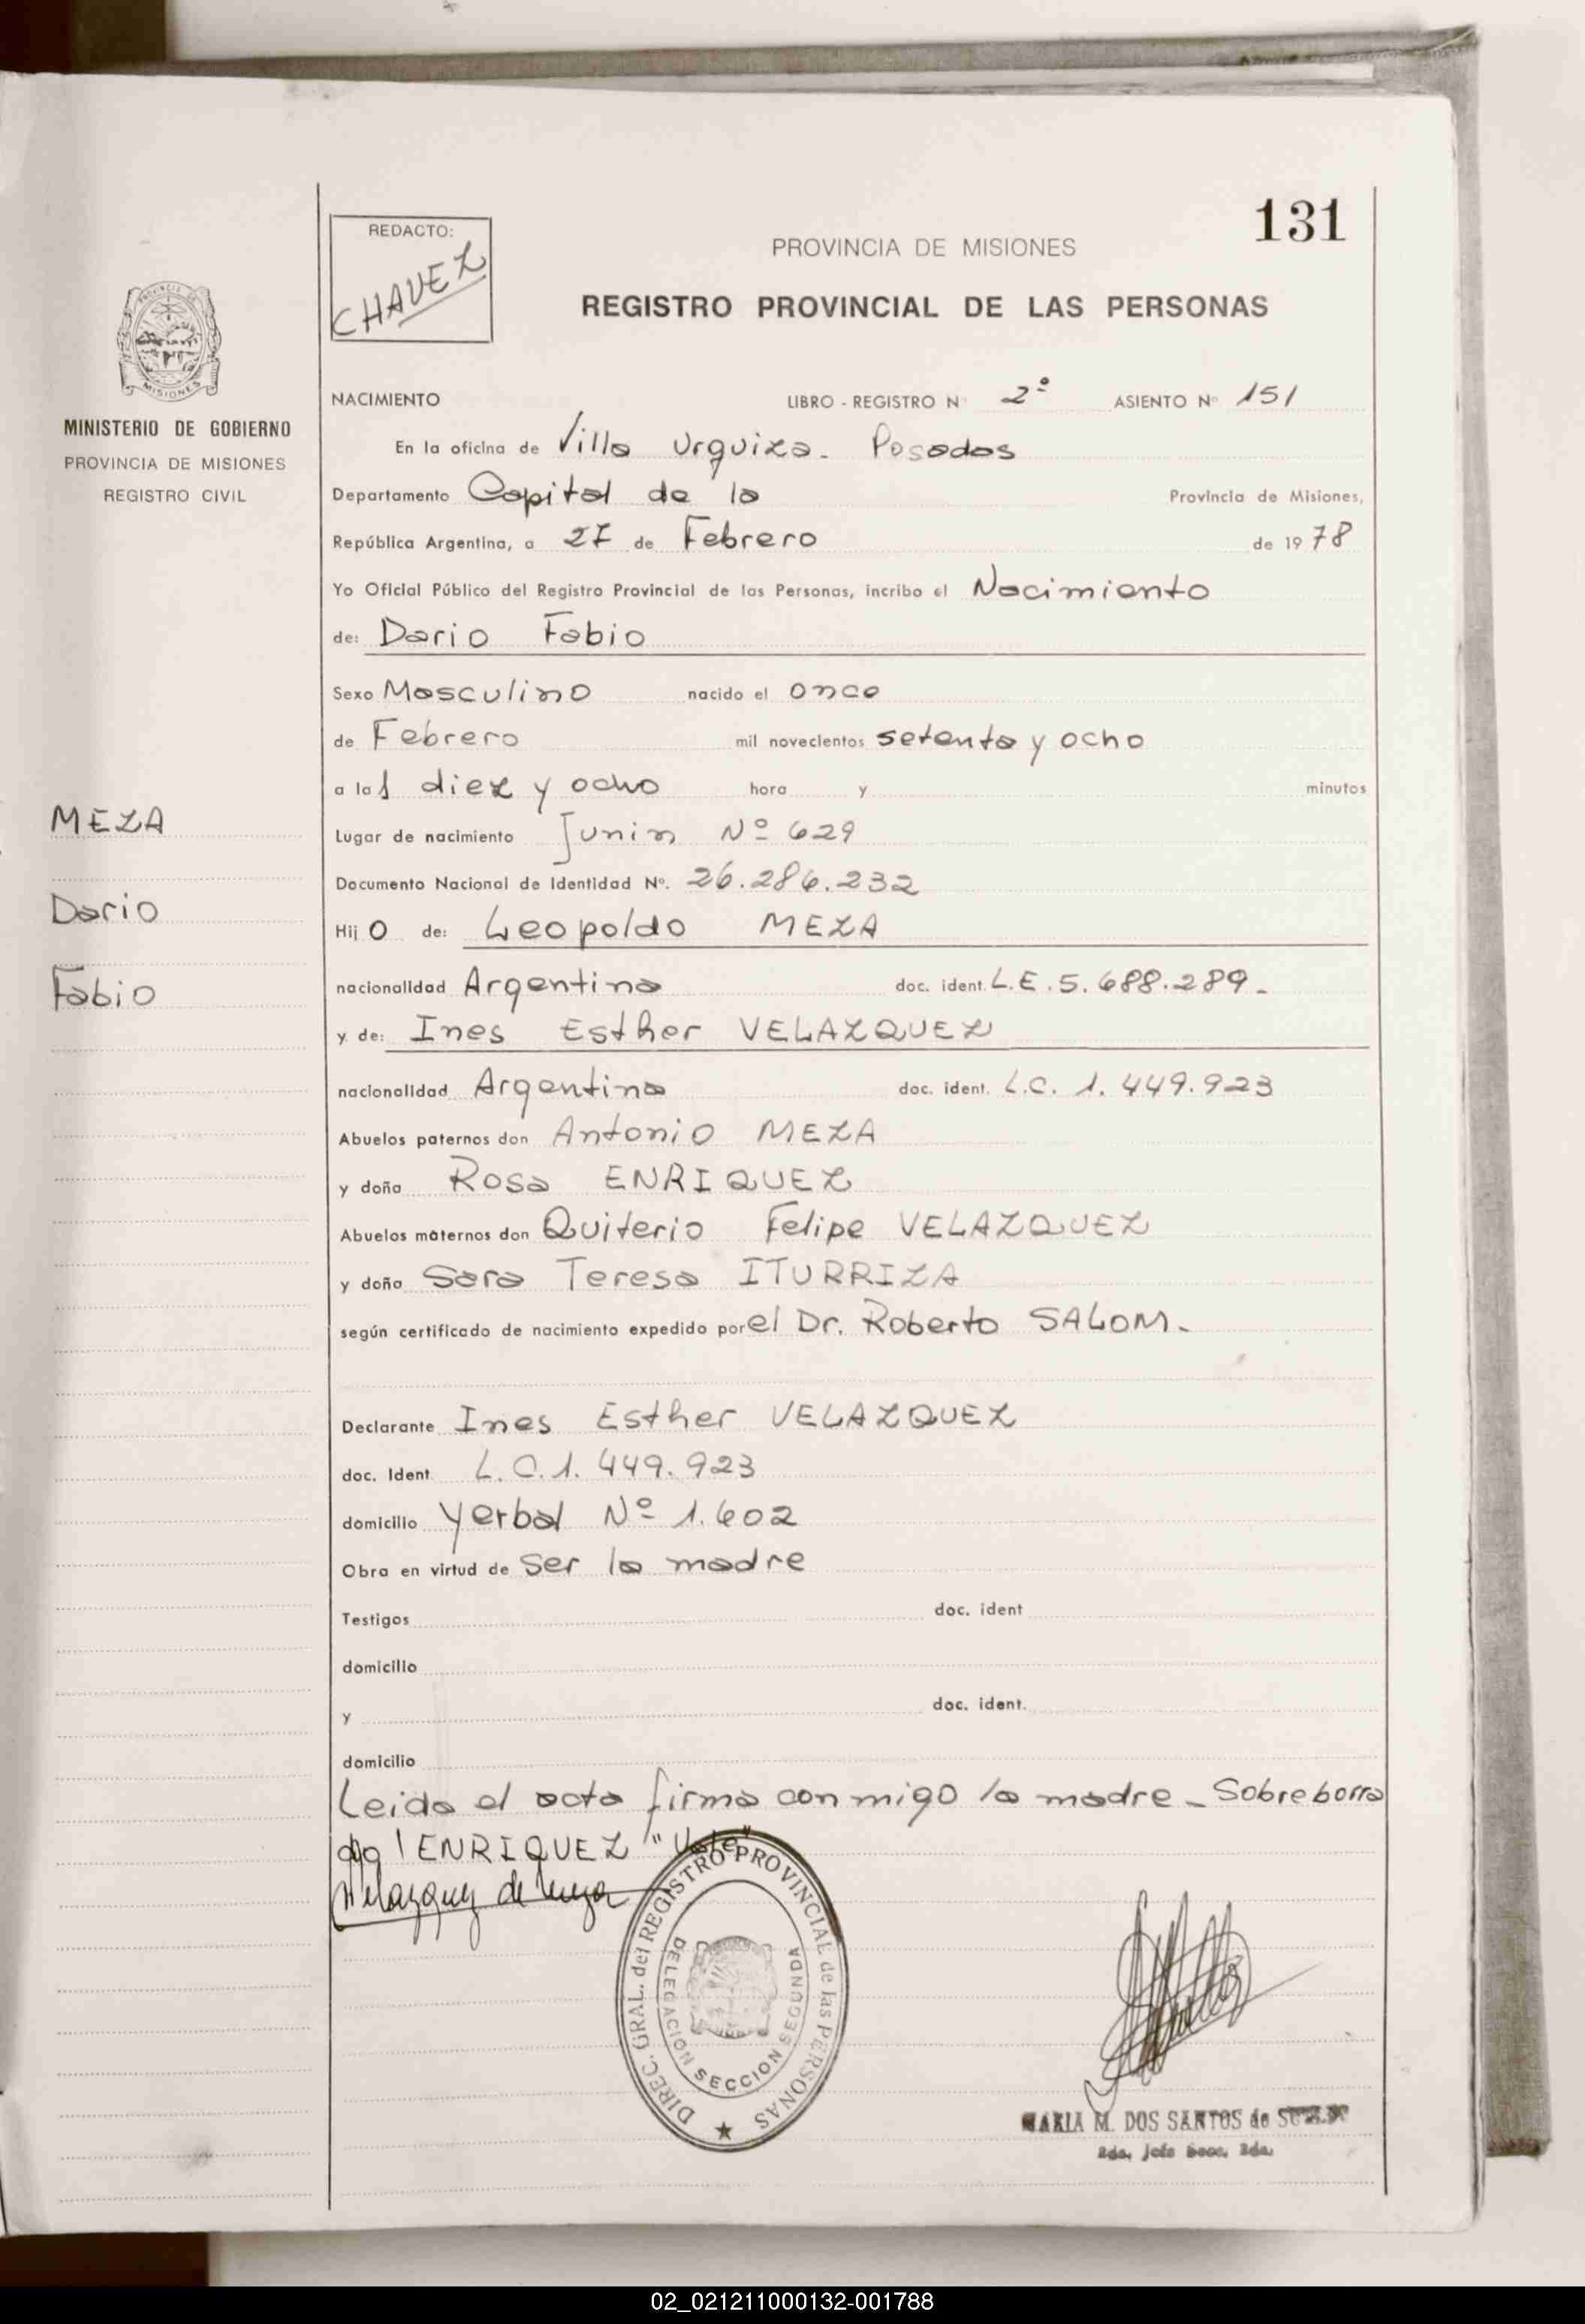 131
REDACTO:
CHAVEZ
PROVINCIA DE MISIONES
REGISTRO PROVINCIAL DE LAS PERSONAS
PROVINCIA DE
MISIONES
MINISTERIO DE GOBIERNO
PROVINCIA DE MISIONES
REGISTRO CIVIL
MEZA
Dario
Fabio
NACIMIENTO LIBRO - REGISTRO N° 2° ASIENTO N° 151
En la oficina de Villa Urquiza - Posadas
Departamento Capital de la Provincia de Misiones,
República Argentina, a 27 de Febrero de 1978
Yo Oficial Público del Registro Provincial de las Personas, incribo el Nacimiento
de: Dario Fabio
Sexo Masculino nacido el once
de Febrero mil novecientos setenta y ocho
a las diez y ocho hora y minutos
Lugar de nacimiento Junin Nº 629
Documento Nacional de Identidad Nº. 26.286.232
Hijo de: Leopoldo MEZA
nacionalidad Argentina doc. ident. L.E. 5.688.289.-
y de: Ines Esther VELAZQUEZ
nacionalidad Argentina doc. ident. L.C. 1.449.923
Abuelos paternos don Antonio MEZA
y doña Rosa ENRIQUEZ
Abuelos maternos don Quiterio Felipe VELAZQUEZ
y doña Sara Teresa ITURRIZA
según certificado de nacimiento expedido por el Dr. Roberto SALOM.-
Declarante Ines Esther VELAZQUEZ
doc. Ident L.C. 1.449.923
domicilio Yerbal Nº 1.602
Obra en virtud de ser la madre
Testigos doc. ident
domicilio
y doc. ident.
domicilio
Leida el acta firma conmigo la madre - Sobreborra
do "ENRIQUEZ "Vale"
Velazquez de Meza
DIREC. GRAL. del REGISTRO PROVINCIAL de las PERSONAS
DELEGACION SECCION SEGUNDA
MARIA M. DOS SANTOS de
2da. Jefe Secc. 2da.
02_021211000132-001788